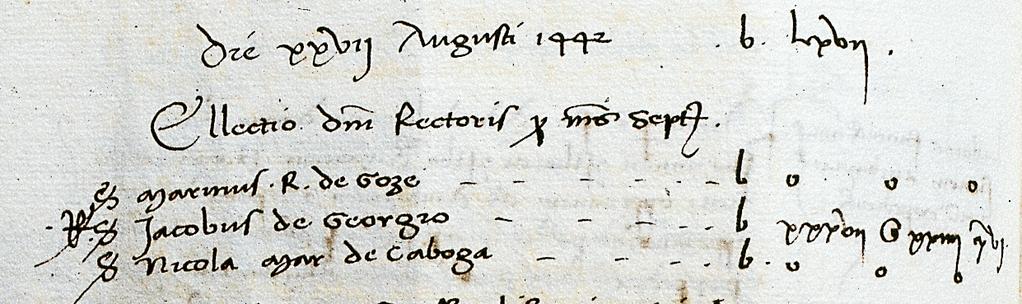 Die xxvii Augusti 1442 . b. lxvii .
Ellectio dni Rectoris p mse Sept.
S Marinus . R . de Goze - - - - - - b o o o
. R. S Jacobus de Georgio - - - - b xxxvii G xxiiii
S Nicola Mar de Caboga - - - - b . o o o